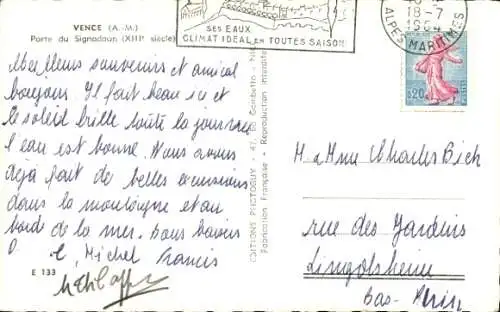 VENCE (A.-M.)
Porte du Signadoun (XIIIe siècle)
SES EAUX
CLIMAT IDEAL EN TOUTES SAISONS
18-7
1964
ALPES MARITIMES
0,20
Meilleurs souvenirs et amical
bonjour. Il fait beau ici et
le soleil brille toute la journée
l'eau est bonne. Nous avons
déjà fait de belles excursions
dans la montagne et au
bord de la mer. Bons baisers
Michel Francis
E 133
EDITIONS PHOTOGUY - 47, Gambetta
Fabrication Française - Reproduction Interdite
M & Mme Charles Bich
rue des Jardins
Lingolsheim
Bas-Rhin